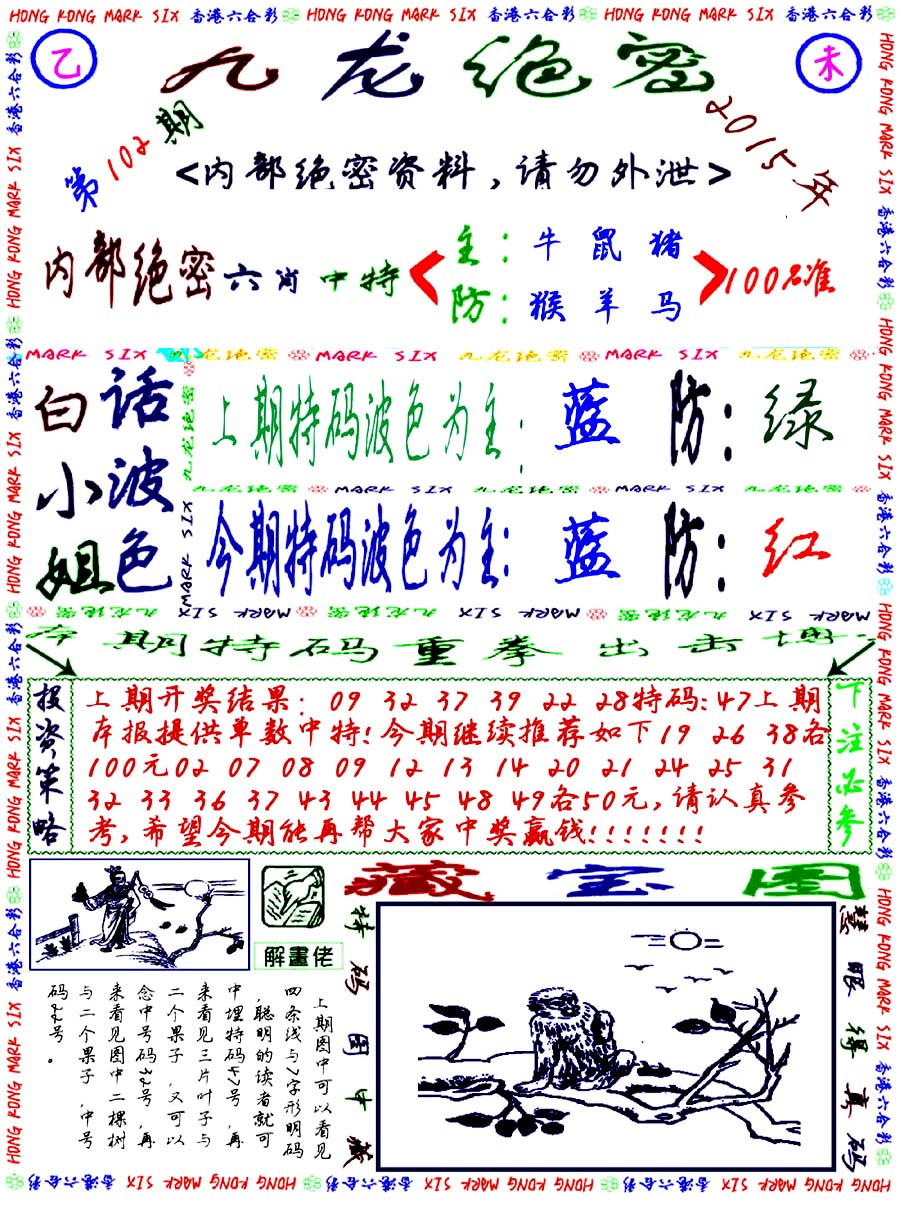 HONG KONG MARK SIX 香港六合彩 HONG KONG MARK SIX 香港六合彩 HONG KONG MARK SIX 香港六合彩
乙
九龙绝密
未
第102期
2015年
<内部绝密资料,请勿外泄>
内部绝密六肖中特
主:牛 鼠 猪
防:猴 羊 马
100%准
MARK SIX 九龙绝密 MARK SIX 九龙绝密 MARK SIX 九龙绝密
白小姐
话波色
上期特码波色为主:蓝 防:绿
九龙绝密 MARK SIX 九龙绝密 MARK SIX 九龙绝密
今期特码波色为主:蓝 防:红
九龙绝密 MARK SIX 九龙绝密 MARK SIX 九龙绝密 MARK SIX
期特码重拳出击
投资策略
上期开奖结果:09 32 37 39 22 28特码:47上期
本报提供单数中特!今期继续推荐如下19 26 38各
100元02 07 08 09 12 13 14 20 21 24 25 31
32 33 36 37 43 44 45 48 49各50元,请认真参
考,希望今期能再帮大家中奖赢钱!!!!!!!
下注必参
藏宝图
解畫佬
特码图中藏
慧眼得真码
上期图中可以看见
四条线与7字形明码
,聪明的读者就可
中埋特码47号,再
来看见三片叶子与
二个果子,又可以
念中号码32号,再
来看见图中二棵树
与二个果子,中号
码22号。
HONG KONG MARK SIX 香港六合彩 HONG KONG MARK SIX 香港六合彩 HONG KONG MARK SIX 香港六合彩